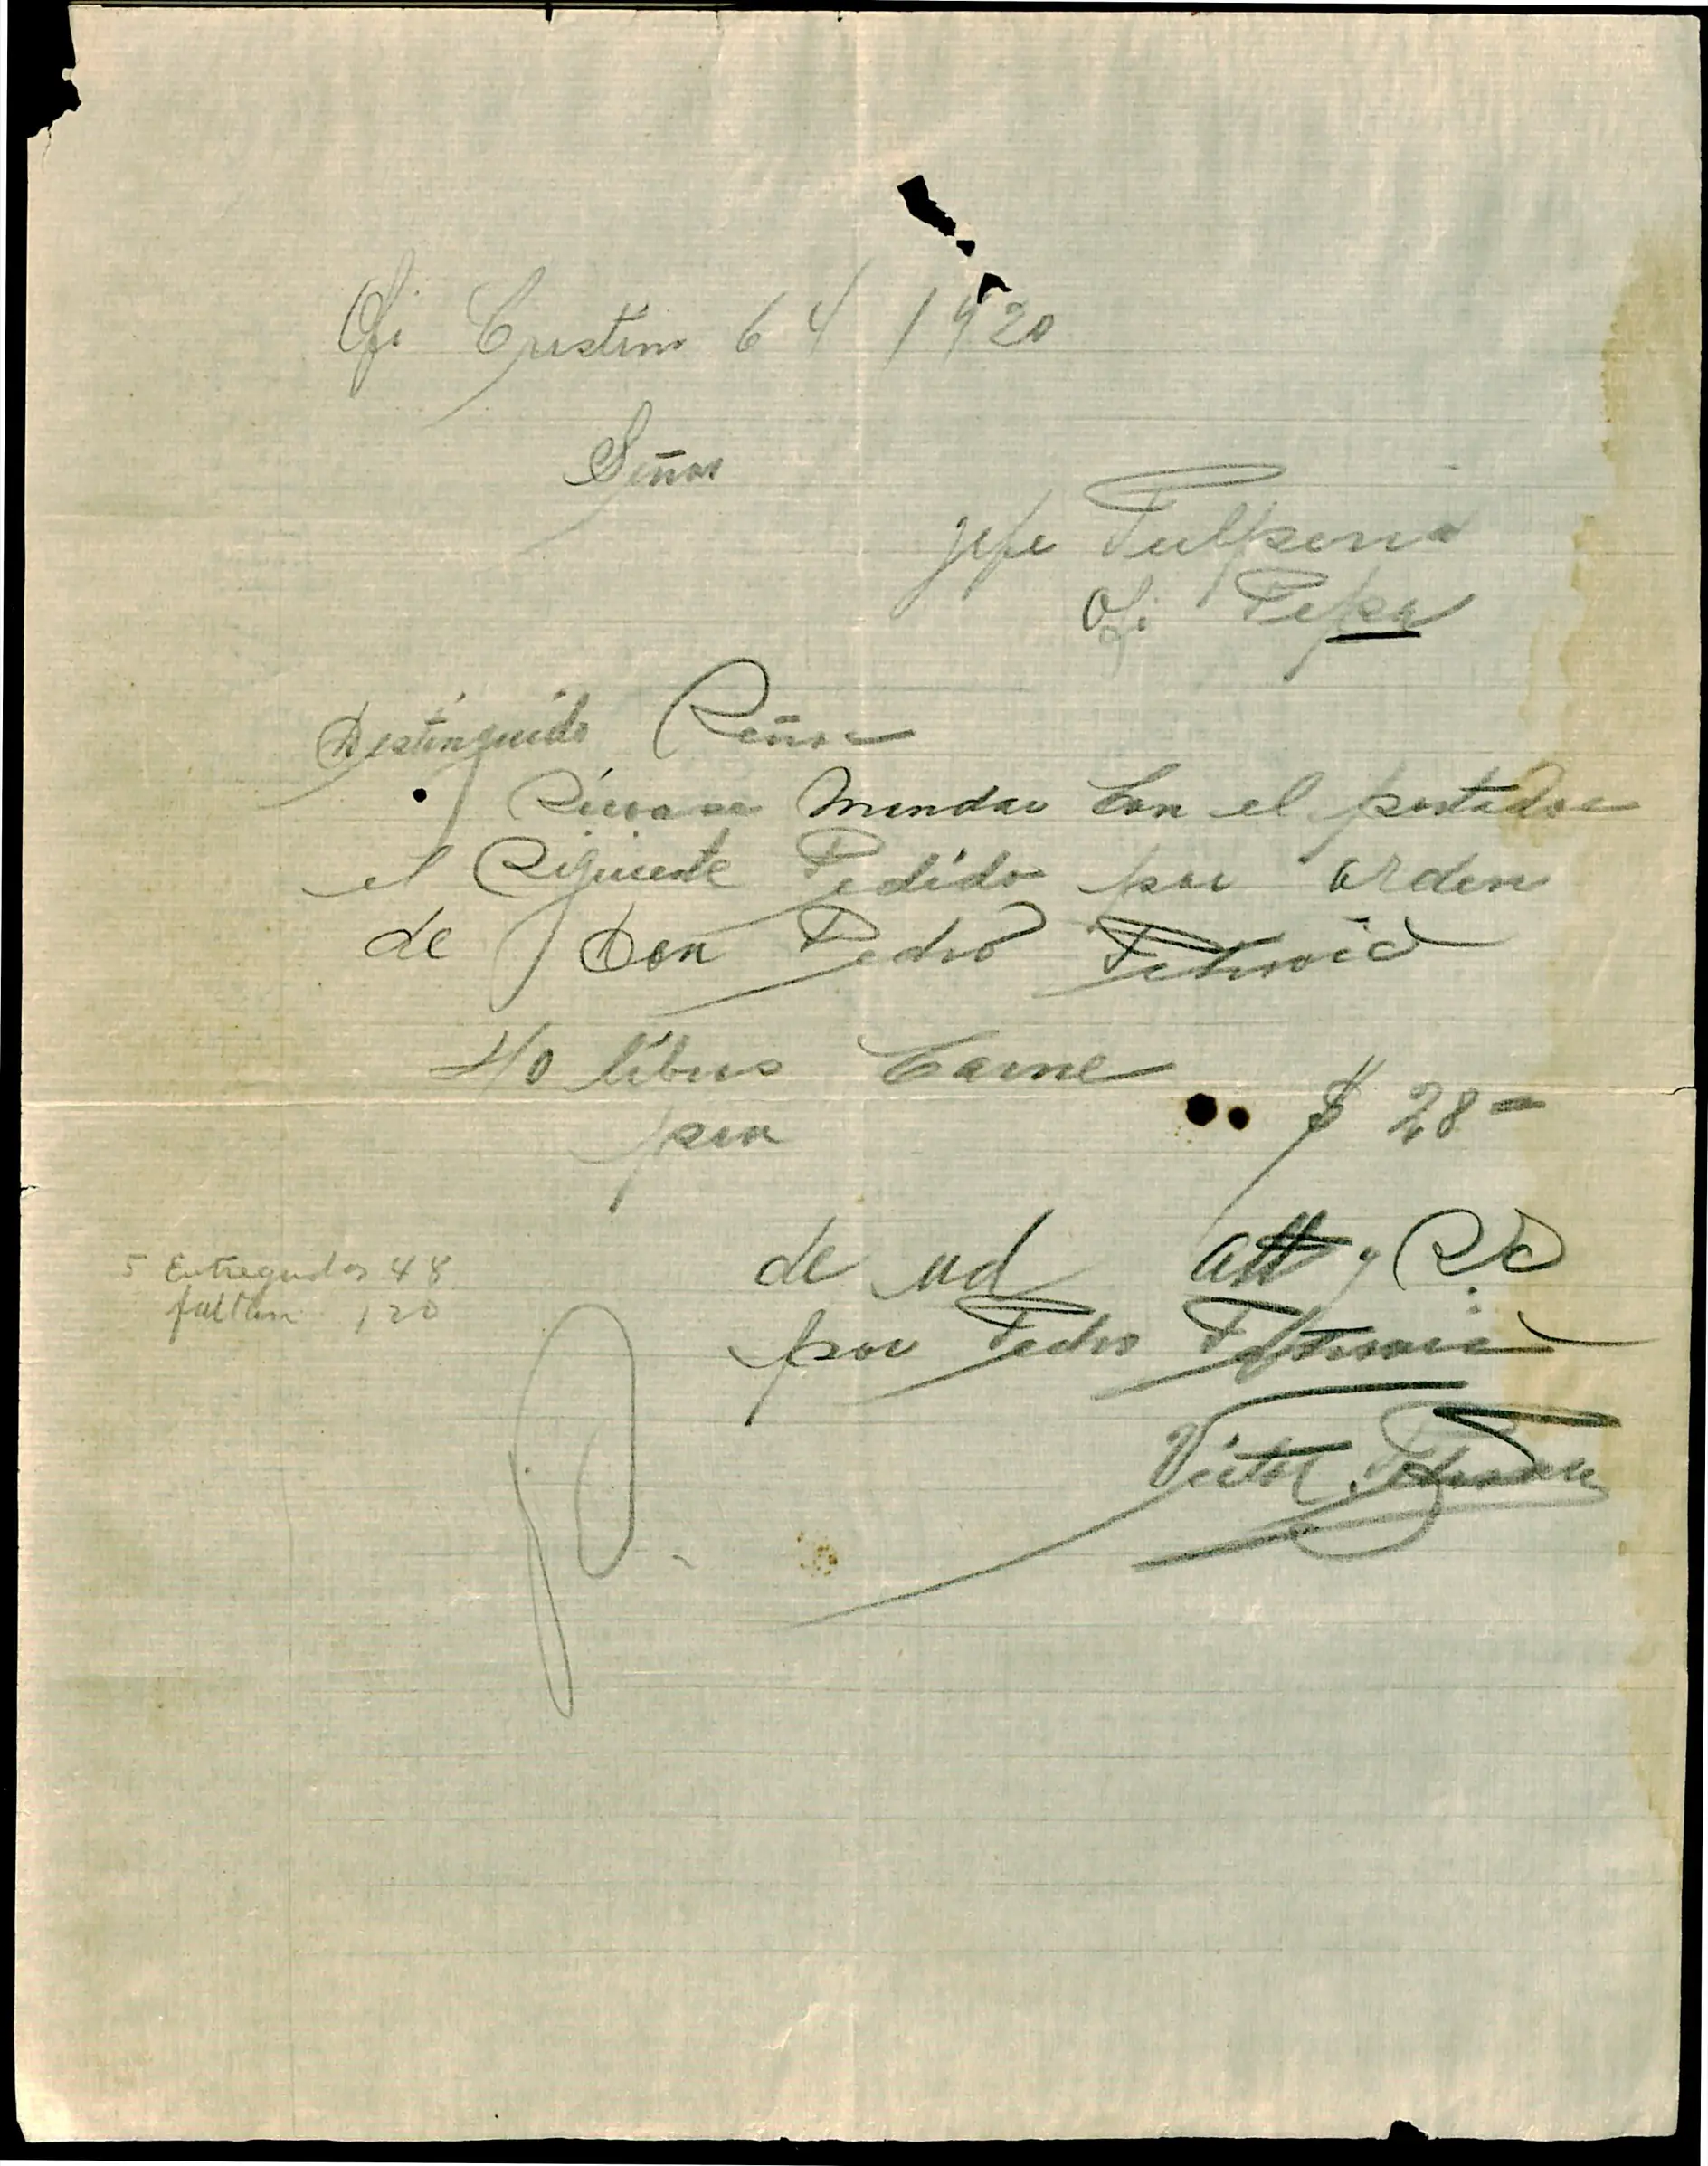 Ofi Cristina 6 4 / 1920
Señor
jefe Pulperia
Ofi Pepa
Distinguido Señor
Sirvase Mandar Con el portador
el Siguiente Pedido por orden
de Don Pedro Petrovic
40 libras Carne
por
$ 28 =
de ud att y S.S
por Pedro Petrovic
Victor
5 Entregados 48
faltan 120